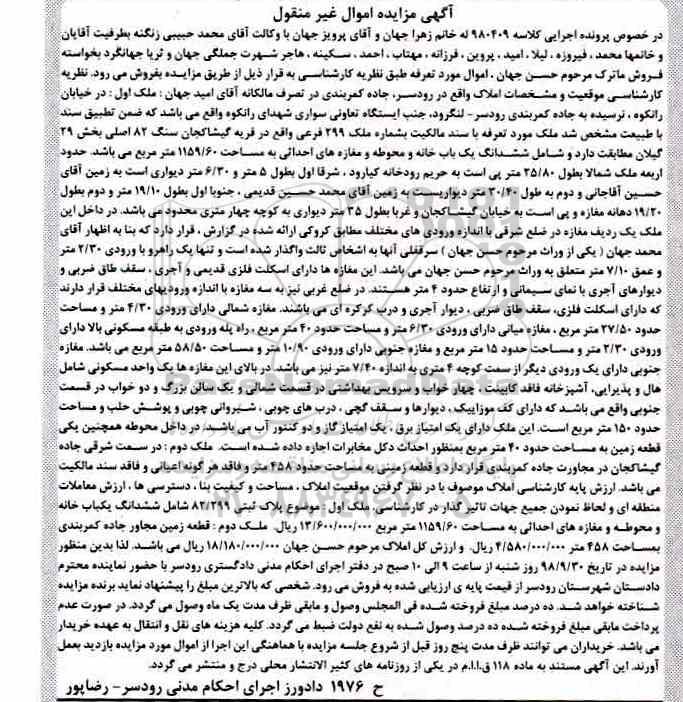 آگهی مزایده اموال غیر منقول
در خصوص پرونده اجرایی کلاسه ۹۸۰۴۰۹ له خانم زهرا جهان و آقای پرویز جهان با وکالت آقای محمد حبیبی زنگنه بطرفیت آقایان
و خانمها محمد ، فیروزه ، لیلا ، امید ، پروین ، فرزانه ، مهتاب ، احمد ، سکینه ، هاجر شهرت جملگی جهان و ثریا جهانگرد بخواسته
فروش ماترک مرحوم حسن جهان ، اموال مورد تعرفه طبق نظریه کارشناسی به قرار ذیل از طریق مزایده بفروش می رود. نظریه
کارشناسی موقعیت و مشخصات املاک واقع در رودسر، جاده کمربندی در تصرف مالکانه آقای امید جهان : ملک اول : در خیابان
رانکوه ، نرسیده به جاده کمربندی رودسر- لنگرود، جنب ایستگاه تعاونی سواری شهدای رانکوه واقع می باشد که ضمن تطبیق سند
با طبیعت مشخص شد ملک مورد تعرفه با سند مالکیت بشماره ملک ۲۹۹ فرعی واقع در قریه گیشاکجان سنگ ۸۲ اصلی بخش ۲۹
گیلان مطابقت دارد و شامل ششدانگ یک باب خانه و محوطه و مغازه های احداثی به مساحت ۱۱۵۹/۶۰ متر مربع می باشد. حدود
اربعه ملک شمالا بطول ۳۵/۸۰ متر پی است به حریم رودخانه کیارود ، شرقا اول بطول ۵ متر و ۶/۳۰ متر دیواری است به زمین آقای
حسین آقاجانی و دوم به طول ۳۰/۴۰ متر دیواریست به زمین آقای محمد حسین قدیمی ، جنوبا اول بطول ۱۹/۱۰ متر و دوم بطول
۱۹/۲۰ دهانه مغازه و پی است به خیابان گیشاکجان و غربا بطول ۳۵ متر دیواری به کوچه چهار متری محدود می باشد. در داخل این
ملک یک ردیف مغازه در ضلع شرقی با اندازه ورودی های مختلف مطابق کروکی ارائه شده در گزارش ، قرار دارد که بنا به اظهار آقای
محمد جهان ( یکی از وراث مرحوم حسن جهان ) سرقفلی آنها به اشخاص ثالث واگذار شده است و تنها یک راهرو با ورودی ۲/۳۰ متر
و عمق ۷/۱۰ متر متعلق به وراث مرحوم حسن جهان می باشد. این مغازه ها دارای اسکلت فلزی قدیمی و آجری ، سقف طاق ضربی و
دیوارهای آجری با نمای سیمانی و ارتفاع حدود ۴ متر هستند. در ضلع غربی نیز به سه مغازه با اندازه ورودیهای مختلف قرار دارند
که دارای اسکلت فلزی، سقف طاق ضربی ، دیوار آجری و درب کرکره ای می باشند. مغازه شمالی دارای ورودی ۴/۳۰ متر و مساحت
حدود ۲۷/۵۰ متر مربع ، مغازه میانی دارای ورودی ۶/۳۰ متر و مساحت حدود ۴۰ متر مربع ، راه پله ورودی به طبقه مسکونی بالا دارای
ورودی ۲/۳۰ متر و مساحت حدود ۱۵ متر مربع و مغازه جنوبی دارای ورودی ۱۰/۹۰ متر و مساحت ۵۸/۵۰ متر مربع می باشد. مغازه
جنوبی دارای یک ورودی دیگر از سمت کوچه ۴ متری به اندازه ۷/۴۰ متر نیز می باشد. در بالای این مغازه ها یک واحد مسکونی شامل
هال و پذیرایی، آشپزخانه فاقد کابینت ، چهار خواب و سرویس بهداشتی در قسمت شمالی و یک سالن بزرگ و دو خواب در قسمت
جنوبی واقع می باشد که دارای کف موزاییک ، دیوارها و سقف گچی ، درب های چوبی ، شیروانی چوبی و پوشش حلب و مساحت
حدود ۱۵۰ متر مربع است. این ملک دارای یک امتیاز برق ، یک امتیاز گاز و دو کنتور آب می باشید. در داخل محوطه همچنین یکی
قطعه زمین به مساحت حدود ۴۰ متر مربع بمنظور احداث دکل مخابرات اجازه داده شده است. ملک دوم : در سمت شرقی جاده
گیشاکجان در مجاورت جاده کمربندی قرار دارد و قطعه زمینی به مساحت حدود ۴۵۸ متر و فاقد هر گونه اعیانی و فاقد سند مالکیت
می باشد. ارزش پایه کارشناسی املاک موصوف با در نظر گرفتن موقعیت املاک ، مساحت و کیفیت بنا ، دسترسی ها ، ارزش معاملات
منطقه ای و لحاظ نمودن جمیع جهات تاثیر گذار در کارشناسی، ملک اول : موضوع پلاک ثبتی ۸۲/۲۹۹ شامل ششدانگ یکباب خانه
و محوطه و مغازه های احداثی به مساحت ۱۱۵۹/۶۰ متر مربع ۱۳/۶۰۰/۰۰۰/۰۰۰ ریال. ملک دوم : قطعه زمین مجاور جاده کمربندی
بمساحت ۴۵۸ متر ۴/۵۸۰/۰۰۰/۰۰۰ ریال. و ارزش کل املاک مرحوم حسن جهان ۱۸/۱۸۰/۰۰۰/۰۰۰ ریال می باشد. لذا بدین منظور
مزایده در تاریخ ۹۸/۹/۳۰ روز شنبه از ساعت ۹ الی ۱۰ صبح در دفتر اجرای احکام مدنی دادگستری رودسر با حضور نماینده محترم
دادستان شهرستان رودسر از قیمت پایه ی ارزیابی شده به فروش می رود. شخصی که بالاترین مبلغ را پیشنهاد نماید برنده مزایده
شناخته خواهد شد. ده درصد مبلغ فروخته شده فی المجلس وصول و مابقی ظرف مدت یک ماه وصول می گردد. در صورت عدم
پرداخت مابقی مبلغ فروخته شده ده درصد وصول شده به نفع دولت ضبط می گردد. کلیه هزینه های نقل و انتقال به عهده خریدار
می باشد. خریداران می توانند ظرف مدت پنج روز قبل از شروع جلسه مزایده با هماهنگی این اجرا از اموال مورد مزایده بازدید بعمل
آورند. این آگهی مستند به ماده ۱۱۸ ق.ا.ا.م در یکی از روزنامه های کثیر الانتشار محلی درج و منتشر می گردد.
ح ۱۹۷۶ دادورز اجرای احکام مدنی رودسر- رضاپور